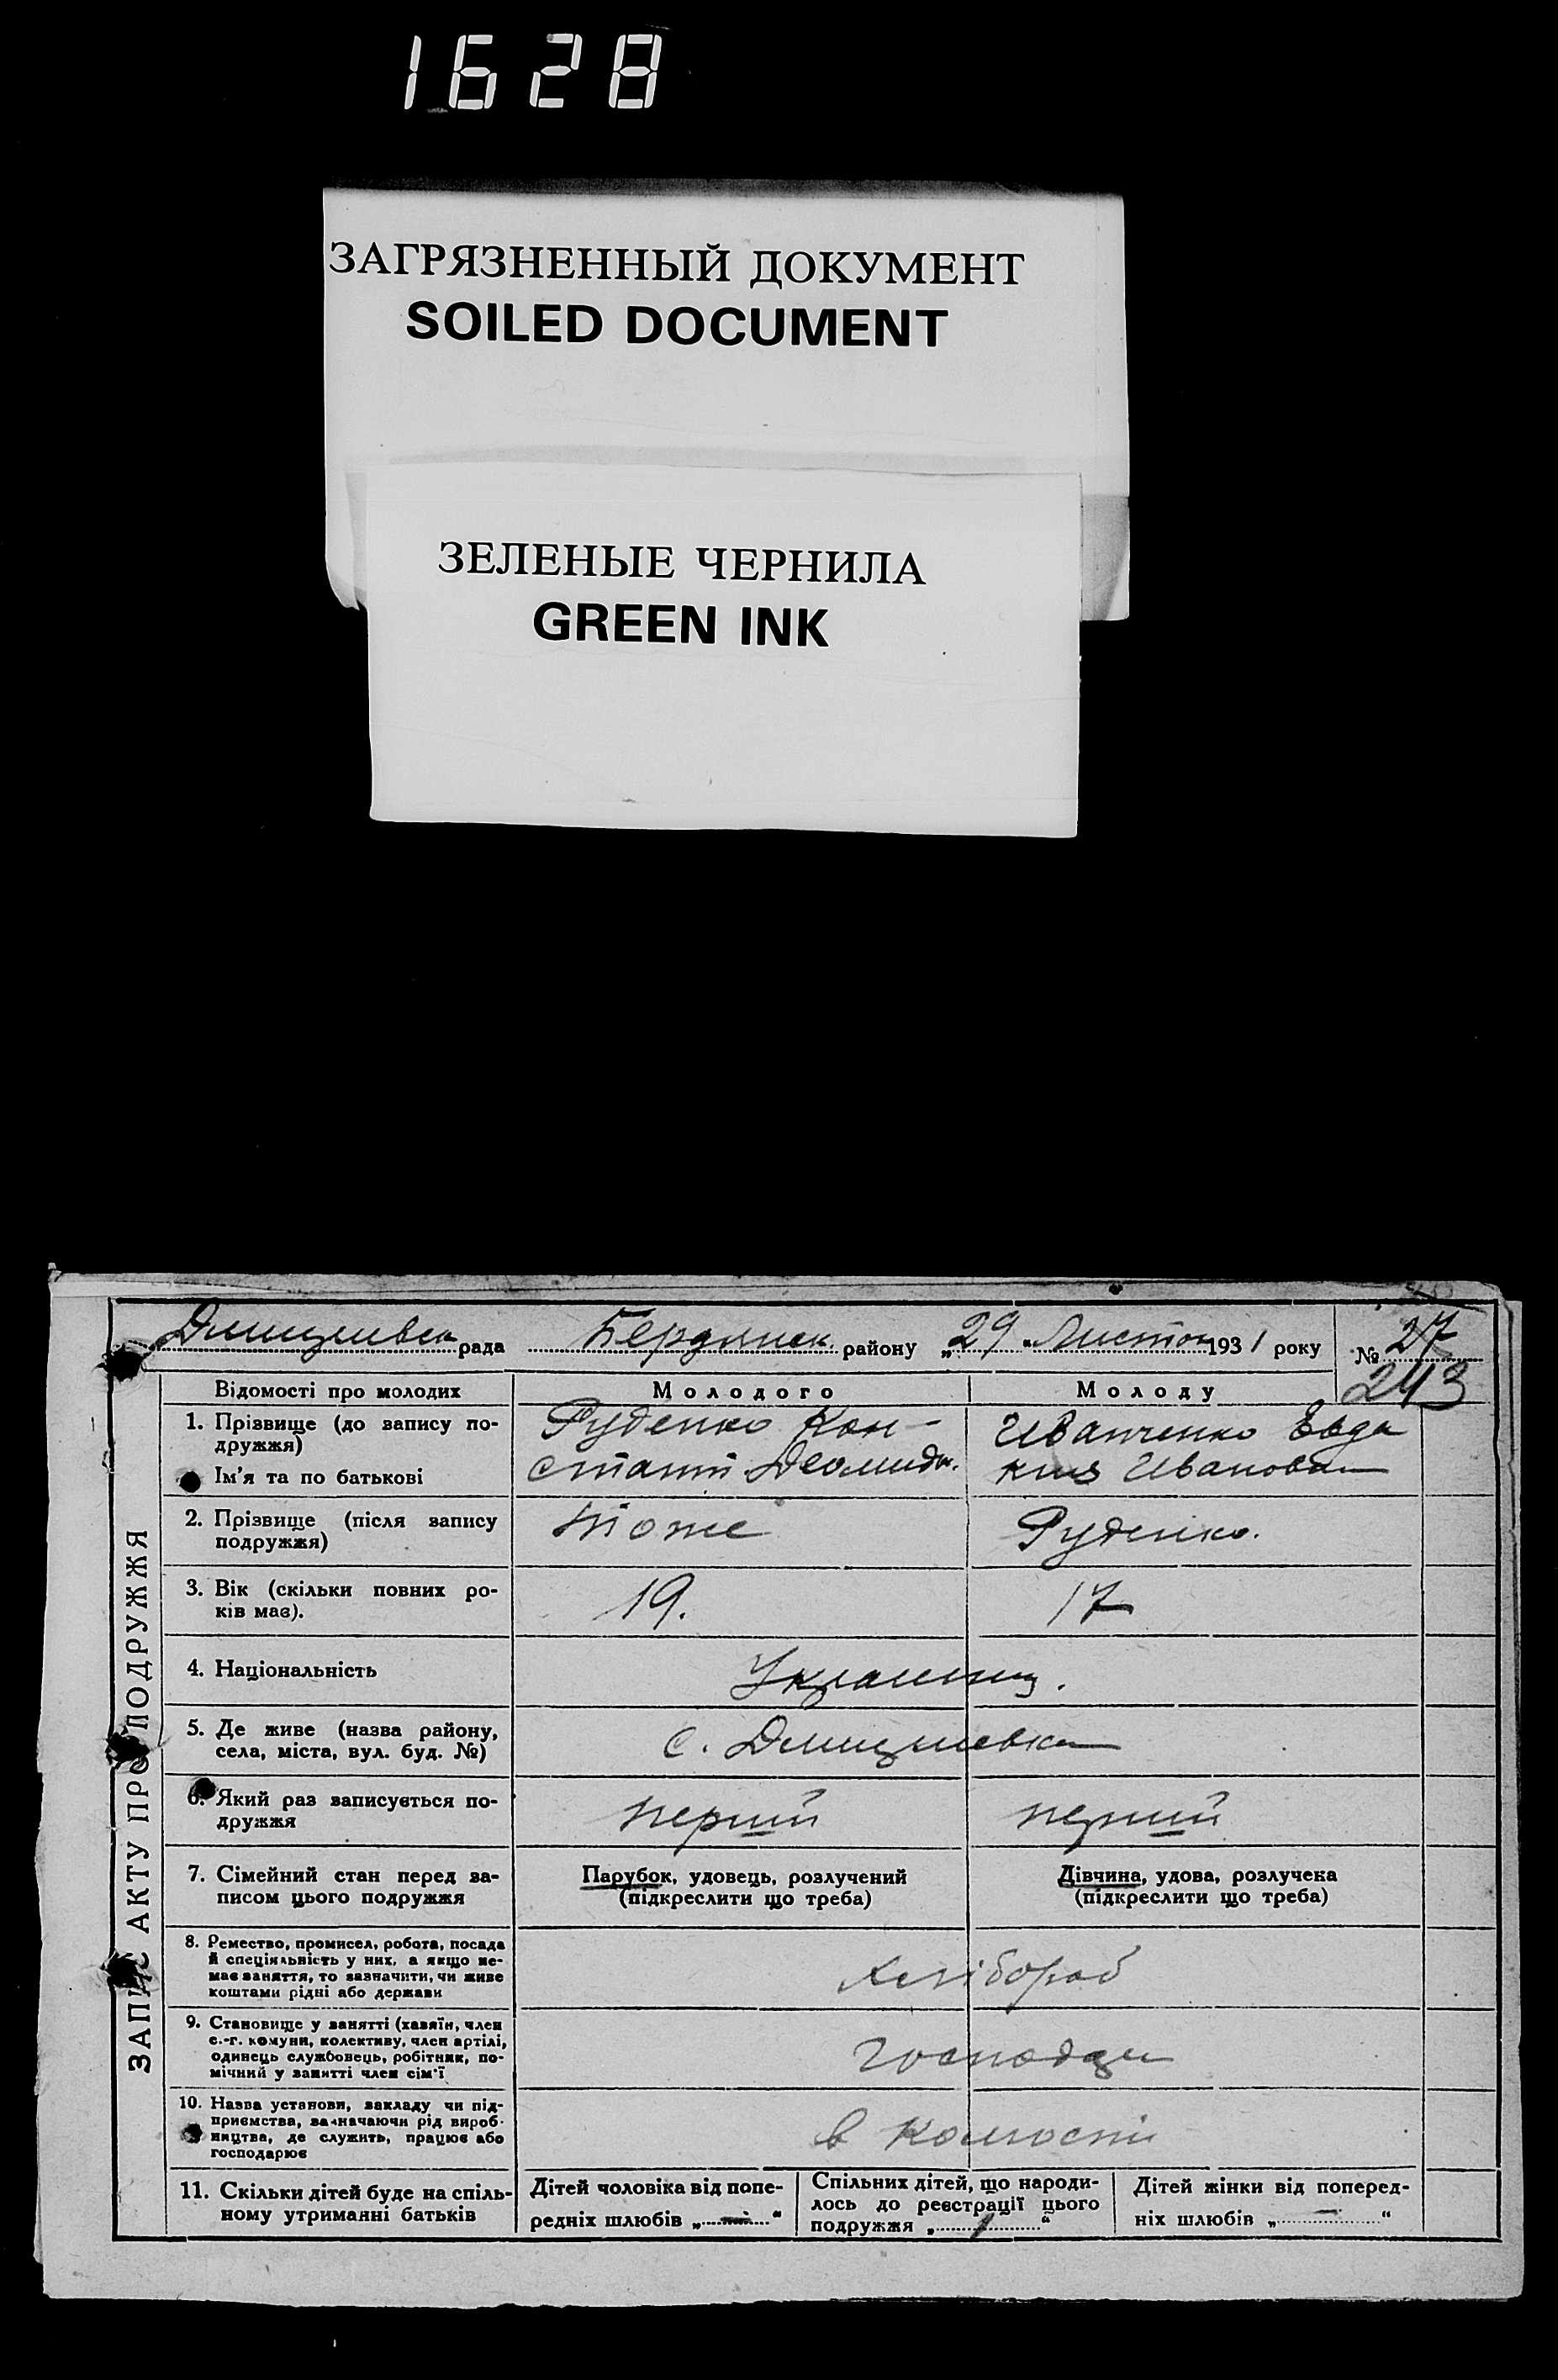 1628
ЗАГРЯЗНЕННЫЙ ДОКУМЕНТ
SOILED DOCUMENT
ЗЕЛЕНЫЕ ЧЕРНИЛА
GREEN INK
ЗАПИС АКТУ ПРО ПОДРУЖЖЯ
рада Бердянск. району „29“ Листоп 1931 року № 27
243
Відомості про молодих Молодого Молоду
1. Прізвище (до запису по-
дружжя)
Ім'я та по батькові
Руденко Кон-
стант Деомидв.
Иванченко Евдо
кия Иванова
2. Прізвище (після запису
подружжя)
тоже Руденко.
3. Вік (скільки повних ро-
ків має).
19. 17
4. Національність
Украинц.
5. Де живе (назва району,
села, міста, вул. буд. №)
с.
6. Який раз записується по-
дружжя
перший перший
7. Сімейний стан перед за-
писом цього подружжя
Парубок, удовець, розлучений
(підкреслити що треба)
Дівчина, удова, розлучека
(підкреслити що треба)
8. Ремество, промисел, робота, посада
й спеціяльність у них, а якщо не-
має заняття, то зазначити, чи живе
коштами рідні або держави
хлібороб
9. Становище у занятті (хазяїн, член
с.-г. комуни, колективу, член артілі,
одинець службовець, робітник, по-
мічний у занятті член сім'ї
10. Назва установи, закладу чи під-
приємства, зазначаючи рід вироб-
ництва, де служить, працює або
господарює
в
11. Скільки дітей буде на спіль-
ному утриманні батьків
Дітей чоловіка від попе-
редніх шлюбів „ — “
Спільних дітей, що народи-
лось до реєстрації цього
подружжя „ 1 “
Дітей жінки від поперед-
ніх шлюбів „ — “